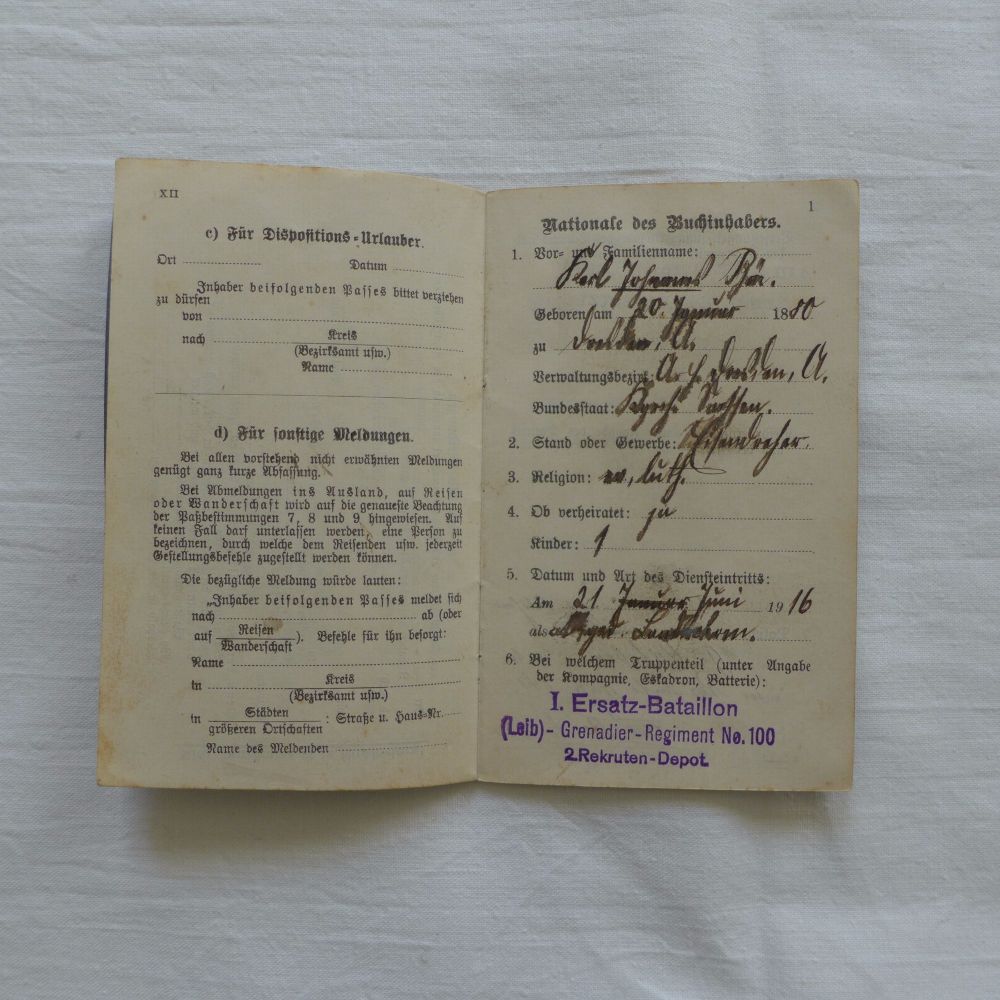 XII
c) Für Dispositions-Urlauber.
Ort Datum
Inhaber beifolgenden Passes bittet verziehen
zu dürfen
von
nach Kreis
(Bezirksamt usw.)
Name
d) Für sonstige Meldungen.
Bei allen vorstehend nicht erwähnten Meldungen
genügt ganz kurze Abfassung.
Bei Abmeldungen ins Ausland, auf Reisen
oder Wanderschaft wird auf die genaueste Beachtung
der Paßbestimmungen 7, 8 und 9 hingewiesen. Auf
keinen Fall darf unterlassen werden, eine Person zu
bezeichnen, durch welche dem Reisenden usw. jederzeit
Gestellungsbefehle zugestellt werden können.
Die bezügliche Meldung würde lauten:
„Inhaber beifolgenden Passes meldet sich
nach ab (oder
auf Reisen
Wanderschaft). Befehle für ihn besorgt:
Name
in Kreis
(Bezirksamt usw.)
in Städten
größeren Ortschaften : Straße u. Haus-Nr.
Name des Meldenden
1
Nationale des Buchinhabers.
1. Vor- und Familienname:
Karl Johannes
Geboren am 20. Januar 1880
zu Dresden, A.
Verwaltungsbezirk: A. H. Dresden, A.
Bundesstaat: Kgrch. Sachsen.
2. Stand oder Gewerbe: Eisendreher.
3. Religion: ev. luth.
4. Ob verheiratet: ja
Kinder: 1
5. Datum und Art des Diensteintritts:
Am 21 Januar Juni 1916
als Landsturm.
6. Bei welchem Truppenteil (unter Angabe
der Kompagnie, Eskadron, Batterie):
I. Ersatz-Bataillon
(Leib)-Grenadier-Regiment No. 100
2. Rekruten-Depot.